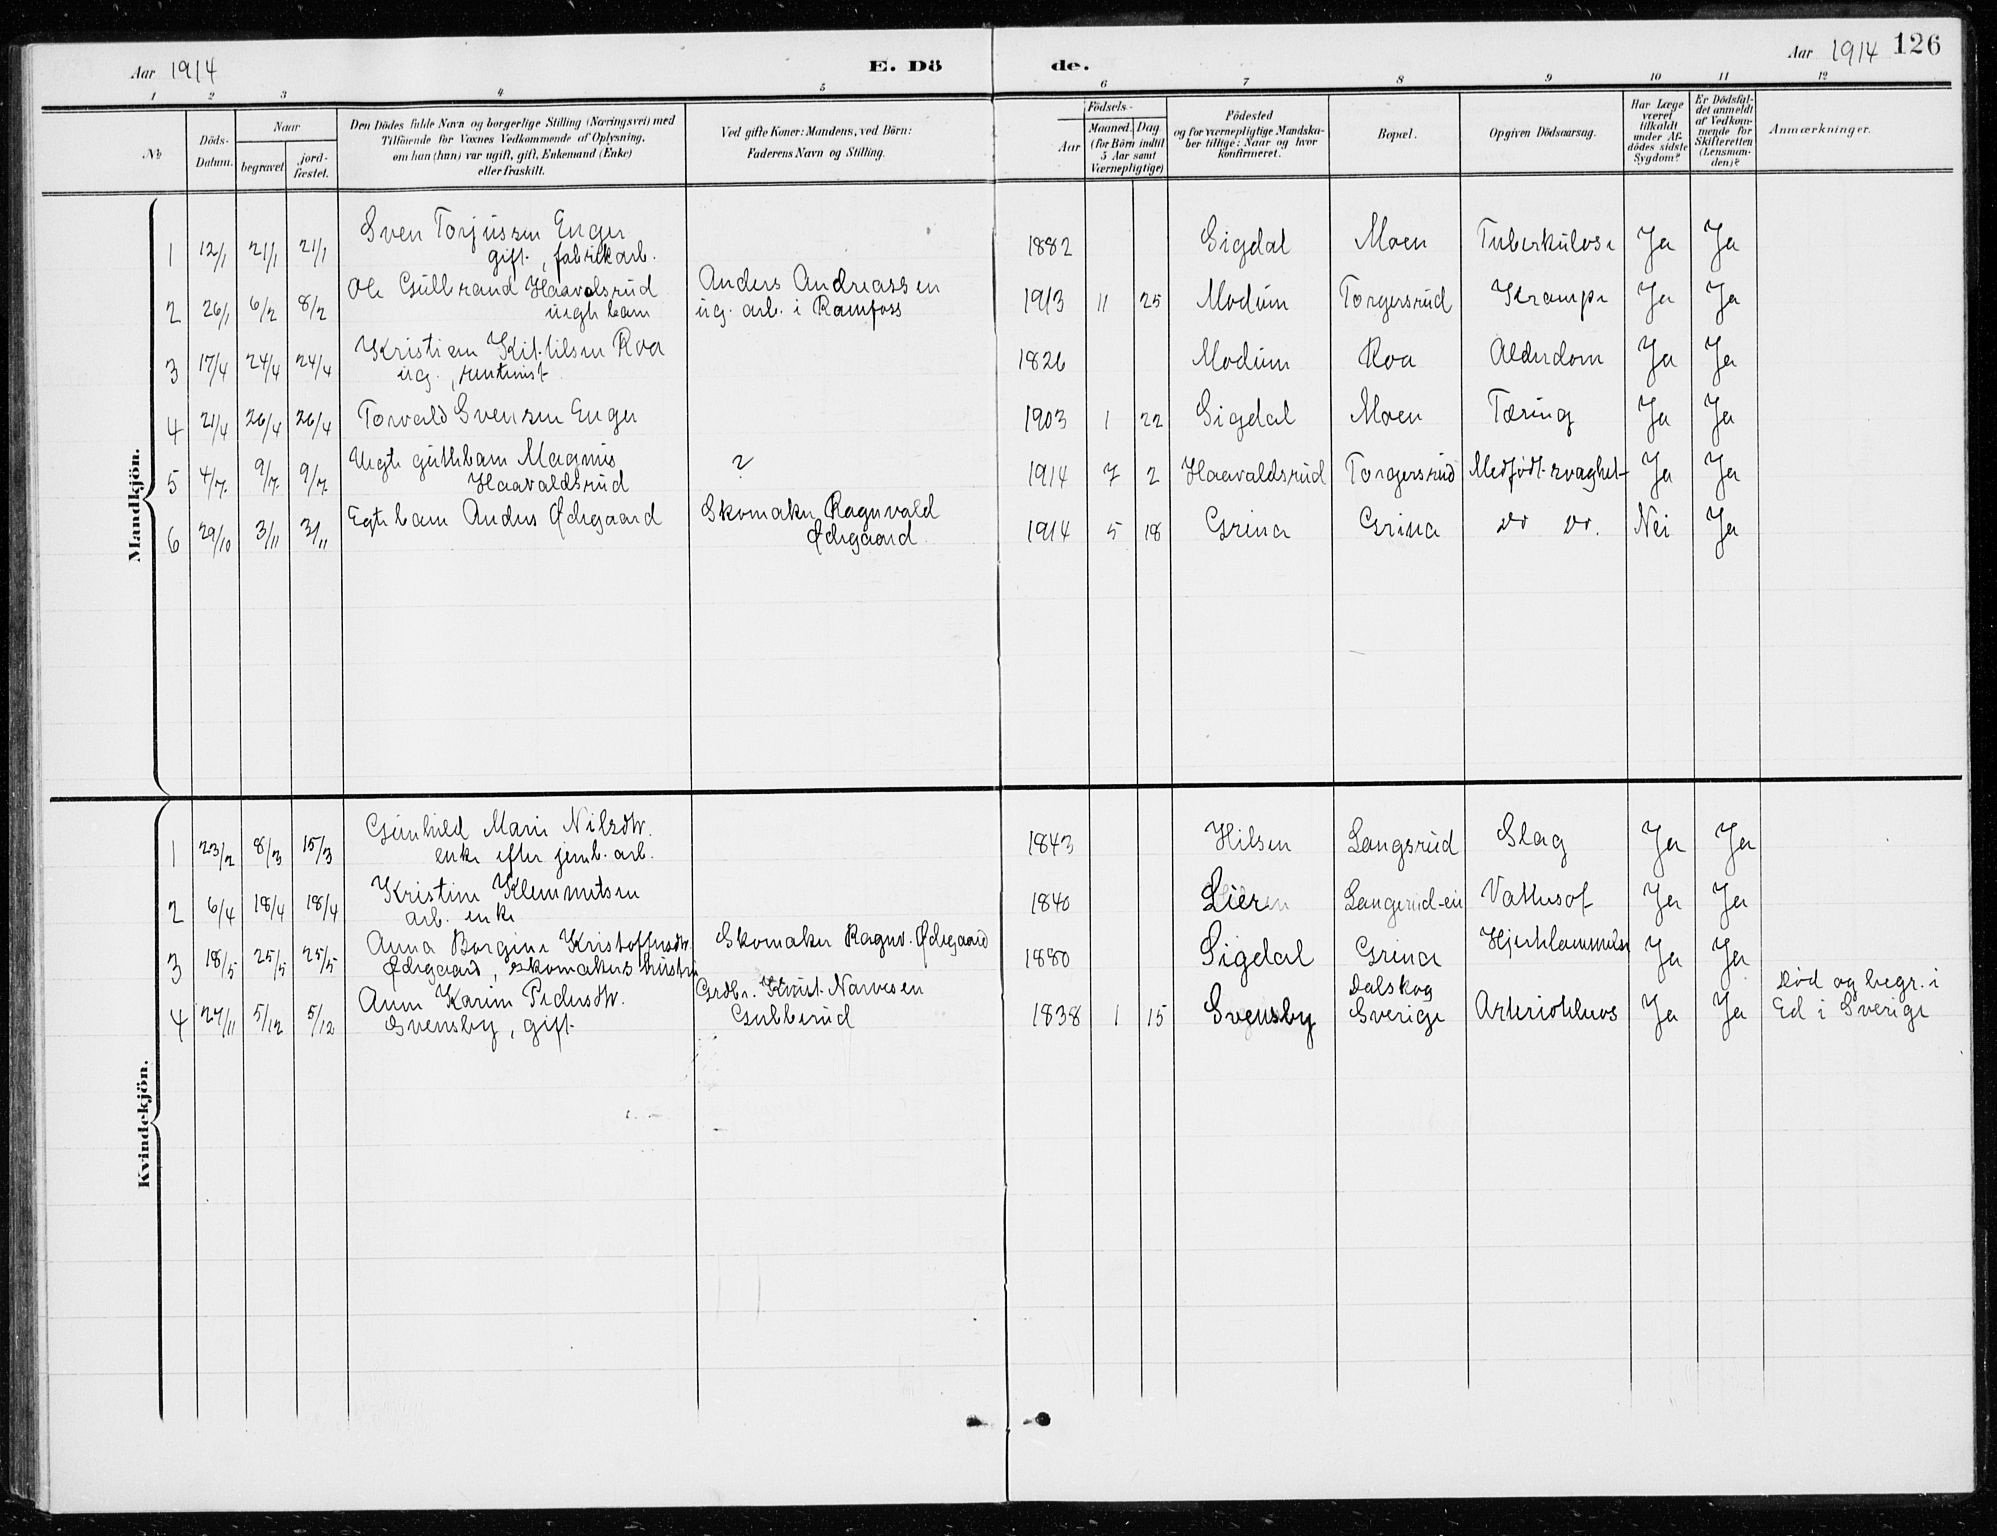 126
Aar 1914
E. Dö
de.
Aar 1914
1 2 3 4 5 6 7 8 9 10 11 12
№
Döds-Datum.
Naar
begravet.
jord-fæstet.
Den Dödes fulde Navn og borgerlige Stilling (Næringsvei) med
Tilföiende för Voxnes Vedkommende af Oplysning,
om han (hun) var ugift, gift, Enkemand (Enke)
eller fraskilt.
Ved gifte Koner: Mandens, ved Börn:
Faderens Navn og Stilling.
Födsels-
Aar
Maaned. Dag
(for Börn indtil
5 Aar samt
Værnepligtige)
Födested
og for værnepligtige Mandska-
ber tillige: Naar og hvor
konfirmeret.
Bopæl.
Opgiven Dödsaarsag.
Har Læge
været
tilkaldt
under Af-
dödes sidste
Sygdom?
Er Dödsfal-
det anmeldt
af Vedkom-
mende for
Skifteretten
(Lensman-
den)?
Anmærkninger.
Mandkjön.
1 12/1 21/1 21/1 Sven Torjussen Enger 1882 Sigdal Moen Tuberkulose Ja Ja
gift, fabrikarb.
2 26/1 6/2 8/2 Ole Gulbrand Haavolsrud Anders Andreassen 1913 11 25 Modum Torgersrud Krampe Ja Ja
uegte barn ug. arb. i Ramfoss
3 17/4 24/4 24/4 Kristian Kittilsen Roa 1826 Modum Roa Alderdom Ja Ja
ug., rentenist
4 21/4 26/4 26/4 Torvald Svensen Enger 1903 1 22 Sigdal Moen Tæring Ja Ja
5 4/7. 9/7. 9/7. Uegte guttebarn Magnus ? 1914 7 2 Haavaldsrud Torgersrud Medfødt svaghet Ja Ja
Haavaldsrud
6 29/10 3/11 3/11 Egte barn Anders Ødegaard Skomaker Ragnvald 1914 5 18 Grina Grina do do. Nei Ja
Ødegaard
Kvindekjön.
1 23/2 8/3 15/3 Gunhild Marie Nilsdtr. 1843 Hilsen Langsrud Slag Ja Ja
enke efter jernb. arb.
2 6/4 18/4 18/4 Kristine Klemmetsen 1840 Lier Langerud-eie Vattersot Ja Ja
arb. enke
3 18/5 25/5 25/5 Anna Borgine Kristoffersdtr. Skomaker Ragnv. Ødegaard 1880 Sigdal Grina Hjertelammelse Ja Ja
Ødegaard, skomakers hustru
4 27/11 5/12 5/12 Anne Karine Pedersdtr. Grdbr. Krist. Narvesen 1838 1 15 Svensby Dalskog Arterioskleros Ja Ja Død og begr. i
Svensby, gift Gubberud Sverige Ed i Sverige